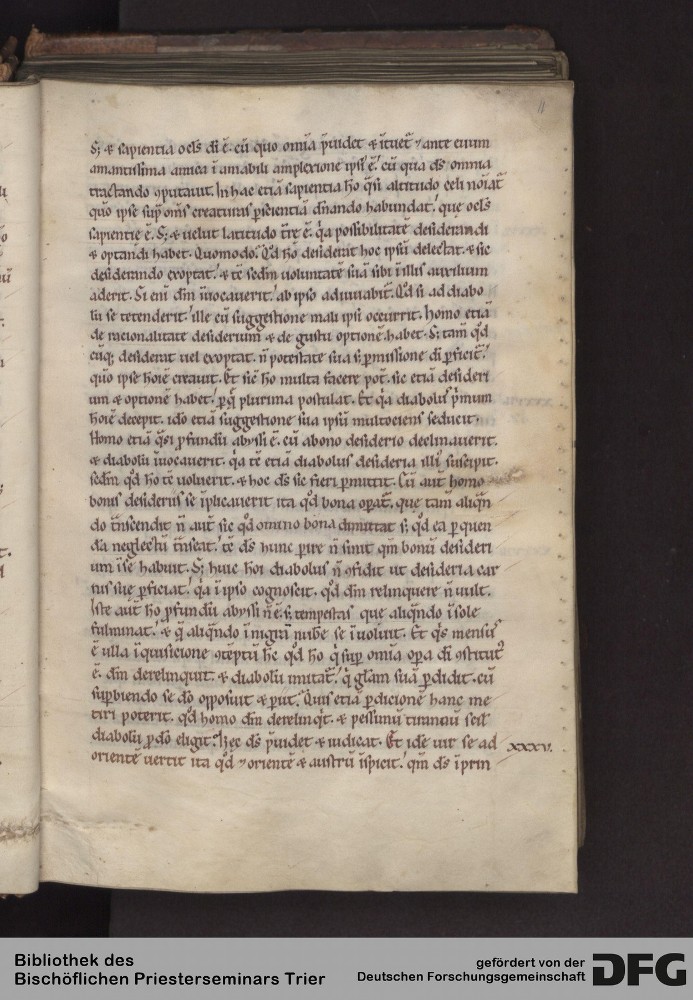 11
S; & sapientia ocl's di ē. cū quo om̄ia p̄uidet & ītuet᷑ ante euum
amantissima amica ī amabili amplexione ipsi ē. cū qua ds om̄ia
tractando ꝯputauit. In hac etiā sapientia hō q̄si altitudo celi noīat᷑
quo ipse sup om̄s creaturas p scientiā dn̄ando habundat. que ocl's
sapientie ē. S; & uelut latitudo t̄re ē. q̇a possibilitatē desiderandi
& optandi habet. Quomodo? Qd hō desiderat hoc ipsū delectat. & sic
desiderando exoptat. & tē sedm uoluntatē suā sibi ī illis auxilium
aderit. Si eni dm̄ īuocauerit. ab ipso adiuuabit᷑. Qd si ad diabo
lū se tetenderit. ille cū suggestione mali ipsi occurrit. Homo etiā
de racionalitate desiderium & de gustu optionē habet. S; tam̄ qd
cūq; desiderat uel exoptat. n̄ potestate sua s; pmissione di pficit᷑.
quo ipse hoīē creauit. Et sic hō multa facere pot̄. sic etiā desideri
um & optionē habet. p q̄ plurima postulat. Et q̇a diabolus ṗmum
hoīē decepit. ido etiā suggestione sua ipsū multociens seducit.
Homo etiā q̄si pfundū abyssi ē. cū a bono desiderio declinauerit.
& diabolū īuocauerit. q̇a tē etiā diabolus desideria illi suscipit.
sedm qd hō tē uoluerit. & hoc ds sic fieri pmittit. Cū aut̄ homo
bonis desideriis se īplicauerit ita qd bona opat᷑. que tam̄ aliqn̄
do t̄nscendit n̄ aut̄ sic qd omnino bona dimittat s; qd ea p quen
dā neglectū t̄nseat. tē ds hunc pire n̄ sinit qm̄ bonū desideri
um ī se habuit. S; huic hoī diabolus n̄ ꝯfidit ut desideria car
nis sue pficiat. q̇a ī ipso cognoscit. qd dm̄ relinquere n̄ uult.
Iste aut̄ hō pfundū abyssi n̄ ē. s; tempestas que aliqn̄do ī sole
fulminat. & q̄ aliqn̄do ī nigrā nube se īuoluit. Et q̇s mensus
ē ulla īquisicione ꝯceptū hc qd hō q̇ sup om̄ia opa di ꝯstitut᷒
ē. dm̄ derelinquit. & diabolū imitat᷑. q̇ glam suā pdidit. cū
supbiendo se do opposuit & put. Quis etiā pdicionē hanc me
tiri poterit. qd homo dm̄ derelinq̇t. & pessimū tirannū scil'
diabolū p do eligit? Hec ds p̄uidet & iudicat. Et idē uir se ad
XXXV.
orientē uertit ita qd orientē & austrū īspicit. qm̄ ds ī prin
Bibliothek des
Bischöflichen Priesterseminars Trier
gefördert von der
Deutschen Forschungsgemeinschaft
DFG